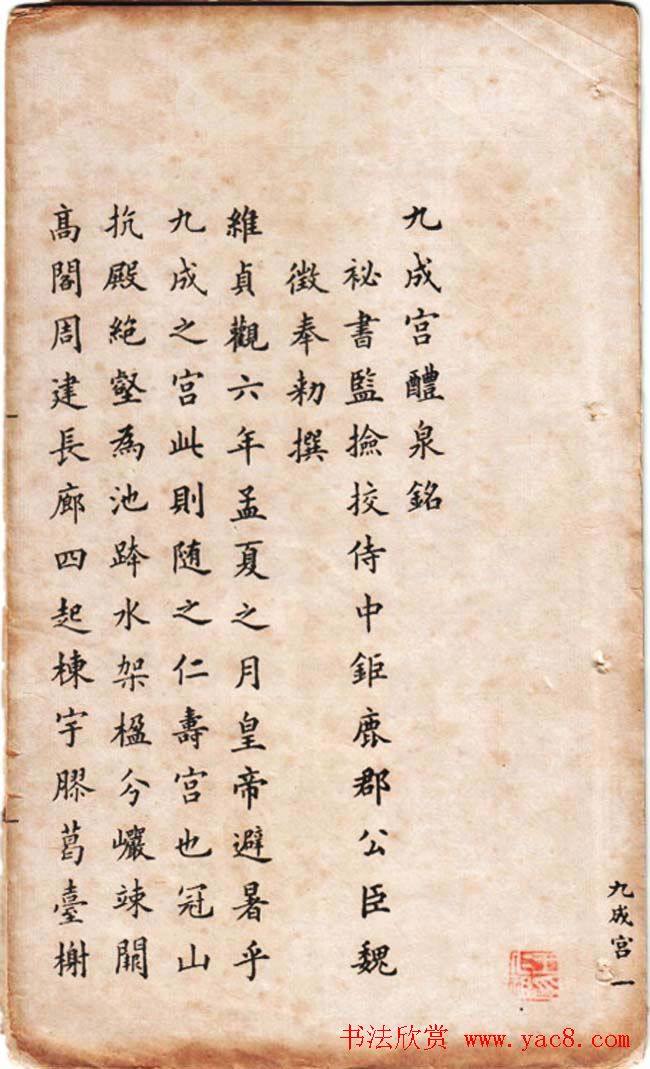 九成宫醴泉銘
祕書監撿挍侍中鉅鹿郡公臣魏
徵奉勑撰
維貞觀六年孟夏之月皇帝避暑乎
九成之宫此則随之仁壽宫也冠山
抗殿絶壑為池跨水架楹分巗竦闕
髙閣周建長廊四起棟宇膠葛臺榭
九成宫 一
书法欣赏 www.yac8.com